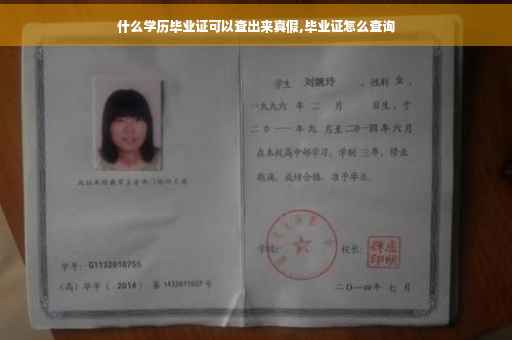 什么学历毕业证可以查出来真假,毕业证怎么查询
学生 刘婉玲 ,性别 女 ,
一九九六 年 二 月 日生,于
二〇一一 年 九 月至 二〇一四 年 六 月
在本校高中部学习,学制 三 年,修业
期满,成绩合格,准予毕业。
学号: G1132010755
(高)毕字( 2014 )第 1432011027 号
学校:
校长:
二〇一四年 七 月